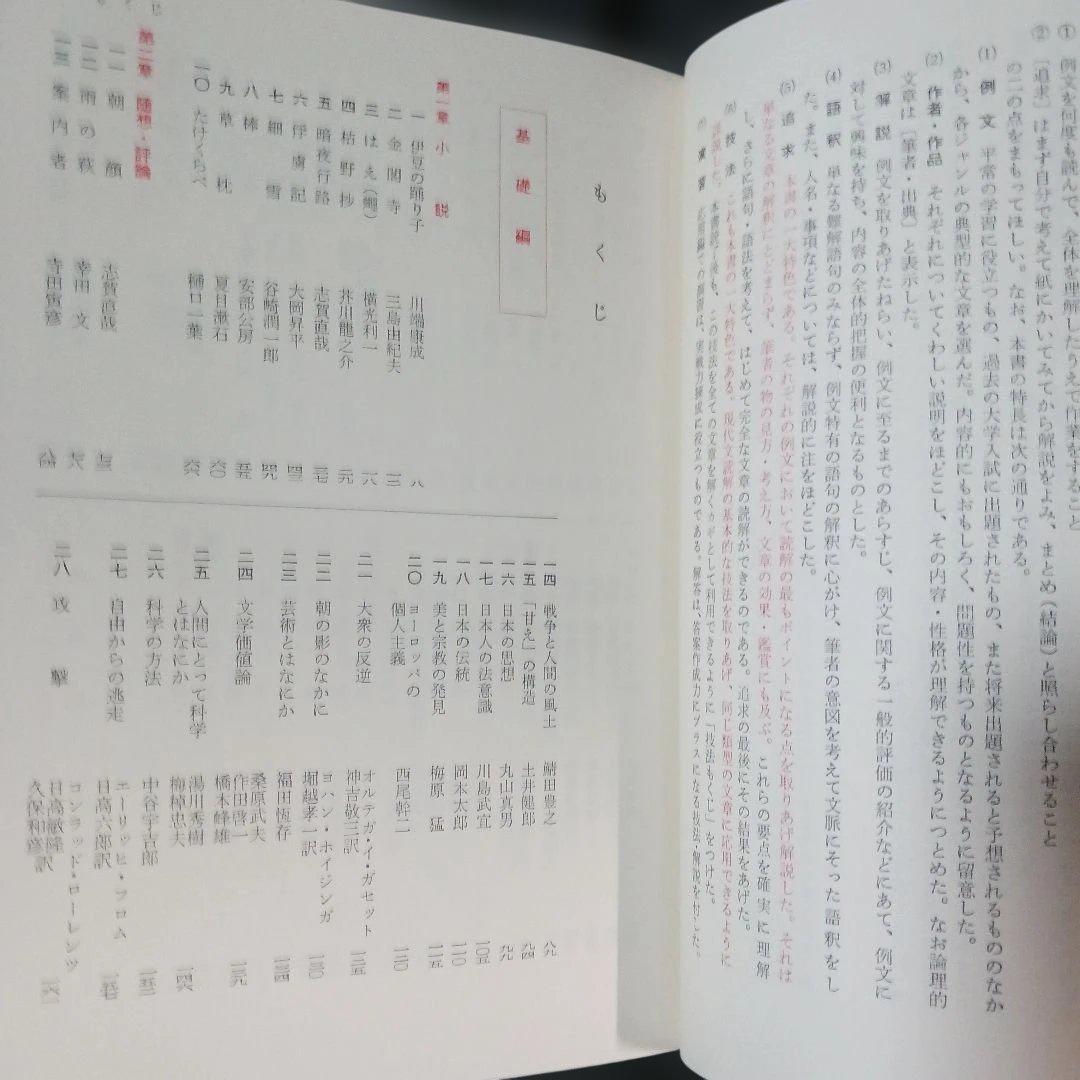 ① 例文を何度も読んで、全体を理解したうえで作業をすること
② 〔追求〕はまず自分で考えて紙にかいてみてから解説をよみ、まとめ(結論)と照らし合わせること
の二つの点をまもってほしい。なお、本書の特長は次の通りである。
(1) 例文 平常の学習に役立つもの、過去の大学入試に出題されたもの、また将来出題されると予想されるもののなか
から、各ジャンルの典型的な文章を選んだ。内容的にもおもしろく、問題性を持つものとなるように留意した。
(2) 作者・作品 それぞれについてくわしい説明をほどこし、その内容・性格が理解できるようにつとめた。なお論理的
文章は〔筆者・出典〕と表示した。
(3) 解説 例文を取りあげたねらい、例文に至るまでのあらすじ、例文に関する一般的評価の紹介などにあて、例文に
対して興味を持ち、内容の全体的把握の便利となるものとした。
(4) 語釈 単なる難解語句のみならず、例文特有の語句の解釈に心がけ、筆者の意図を考えて文脈にそった語釈をし
た。また、人名・事項などについては、解説的に注をほどこした。
(5) 追求 本書の一大特色である。それぞれの例文において読解の最もポイントになる点を取りあげ解説した。それは
単なる文章の解釈にとどまらず、筆者の物の見方・考え方、文章の効果・鑑賞にも及ぶ。これらの要点を確実に理解
し、さらに語句・語法を考えて、はじめて完全な文章の読解ができるのである。追求の最後にその結果をあげた。
(6) 技法 これも本書の一大特色である。現代文読解の基本的な技法を取りあげ、同じ類型の文章に応用できるように
説した。本書読了後も、この技法を全ての文章を解くカギとして利用できるように「技法もくじ」をつけた。
応用編での演習は、実戦力養成に役立つものである。解答は、答案作成力にプラスになる技法・解説を付した。
もくじ
基礎編
第一章 小説
一 伊豆の踊り子 川端康成 八
二 金閣寺 三島由紀夫 一三
三 はえ(蠅) 横光利一 一八
四 枯野抄 芥川龍之介 二九
五 暗夜行路 志賀直哉 三七
六 俘虜記 大岡昇平 四三
七 細雪 谷崎潤一郎 四九
八 棒 安部公房 五五
九 草枕 夏目漱石 六〇
一〇 たけくらべ 樋口一葉 六六
第二章 随想・評論
一一 朝顔 志賀直哉 七三
一二 雨の萩 幸田文 七六
一三 案内者 寺田寅彦
一四 戦争と人間の風土 鯖田豊之 八九
一五 「甘え」の構造 土井健郎 九四
一六 日本の思想 丸山真男 九九
一七 日本人の法意識 川島武宜 一〇五
一八 日本の伝統 岡本太郎 一一〇
一九 美と宗教の発見 梅原猛 一一五
二〇 ヨーロッパの
個人主義 西尾幹二 一二〇
二一 大衆の反逆 オルテガ・イ・ガセット
神吉敬三訳 一二五
二二 朝の影のなかに ヨハン・ホイジンガ
堀越孝一訳 一三〇
二三 芸術とはなにか 福田恆存 一三四
二四 文学価値論 桑原武夫
作田啓一
橋本峰雄 一三九
二五 人間にとって科学
とはなにか 湯川秀樹
梅棹忠夫 一四六
二六 科学の方法 中谷宇吉郎 一五二
二七 自由からの逃走 エーリッヒ・フロム
日高六郎訳 一五七
二八 攻撃 コンラッド・ローレンツ
日高敏隆
久保和彦訳